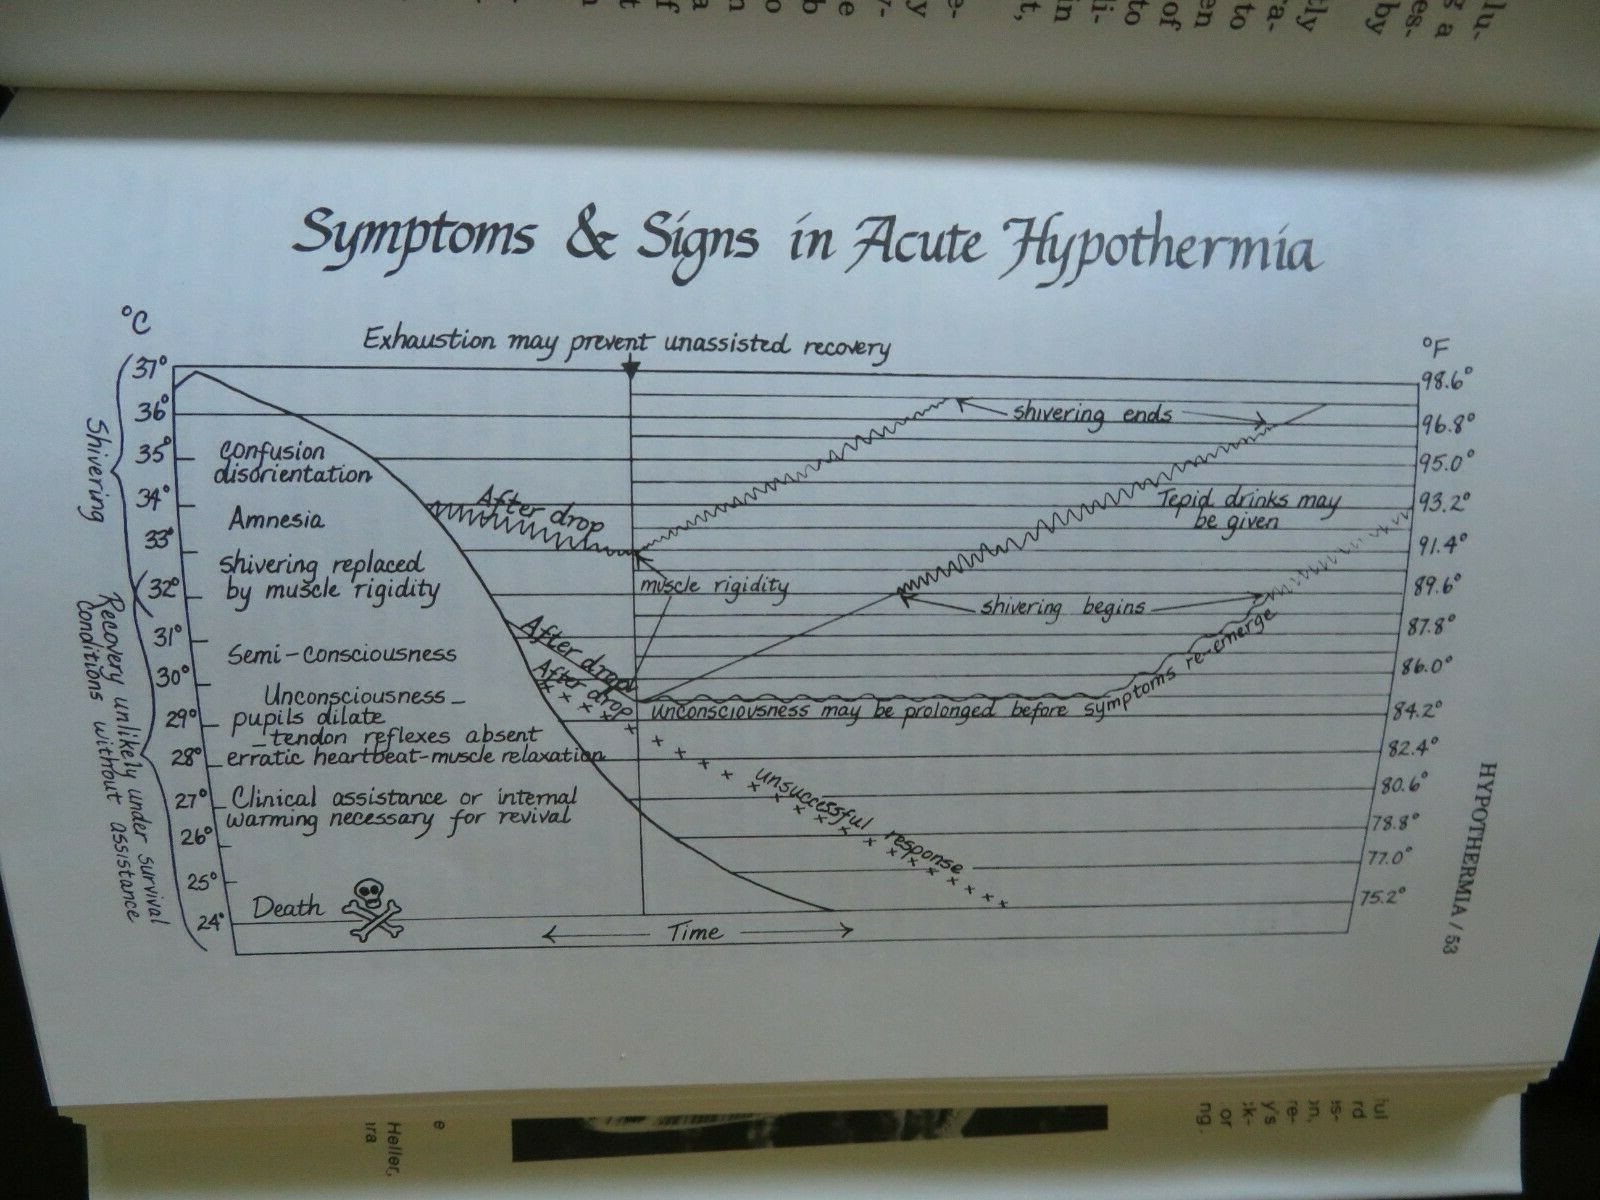 Symptoms & Signs in Acute Hypothermia
°C
Exhaustion may prevent unassisted recovery
°F
37°
36°
35°
34°
33°
32°
31°
30°
29°
28°
27°
26°
25°
24°
98.6°
96.8°
95.0°
93.2°
91.4°
89.6°
87.8°
86.0°
84.2°
82.4°
80.6°
78.8°
77.0°
75.2°
Shivering
Recovery unlikely under survival
conditions without assistance
confusion
disorientation
Amnesia
shivering replaced
by muscle rigidity
Semi-consciousness
Unconsciousness –
pupils dilate
– tendon reflexes absent
erratic heartbeat-muscle relaxation
Clinical assistance or internal
warming necessary for revival
Death
After drop
After drop
After drop
shivering ends
Tepid drinks may
be given
muscle rigidity
shivering begins
unconsciousness may be prolonged before symptoms re-emerge
unsuccessful response
Time
HYPOTHERMIA / 53
Heller,